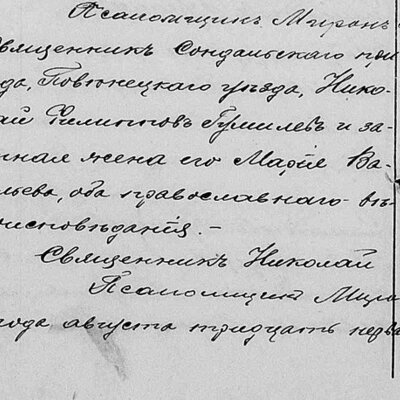 Псаломщикъ Миронъ
Священникъ Сондальскаго при
да, Повѣнецкаго уѣзда, Нико-
ай Филипповъ Гумилевъ и за-
нная жена его Марія Ва-
льева, оба православнаго вѣ-
оисповѣданія. –
Священникъ Николай
Псаломщикъ Миро
года августа тридцать перва